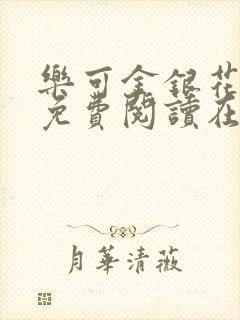 樂可金銀花
免費閱讀在
月華清薇